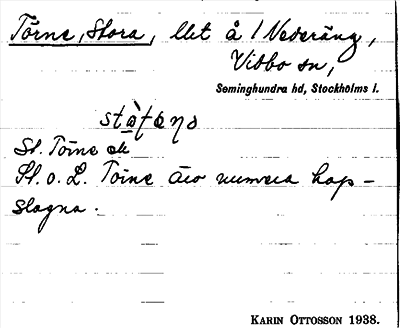 Törne, Stora, llet å / Nederäng,
Vidbo sn,
Seminghundra hd, Stockholms l.
St. Törne ek
St. o. L. Törne äro numera hop-
slagna.
KARIN OTTOSSON 1938.